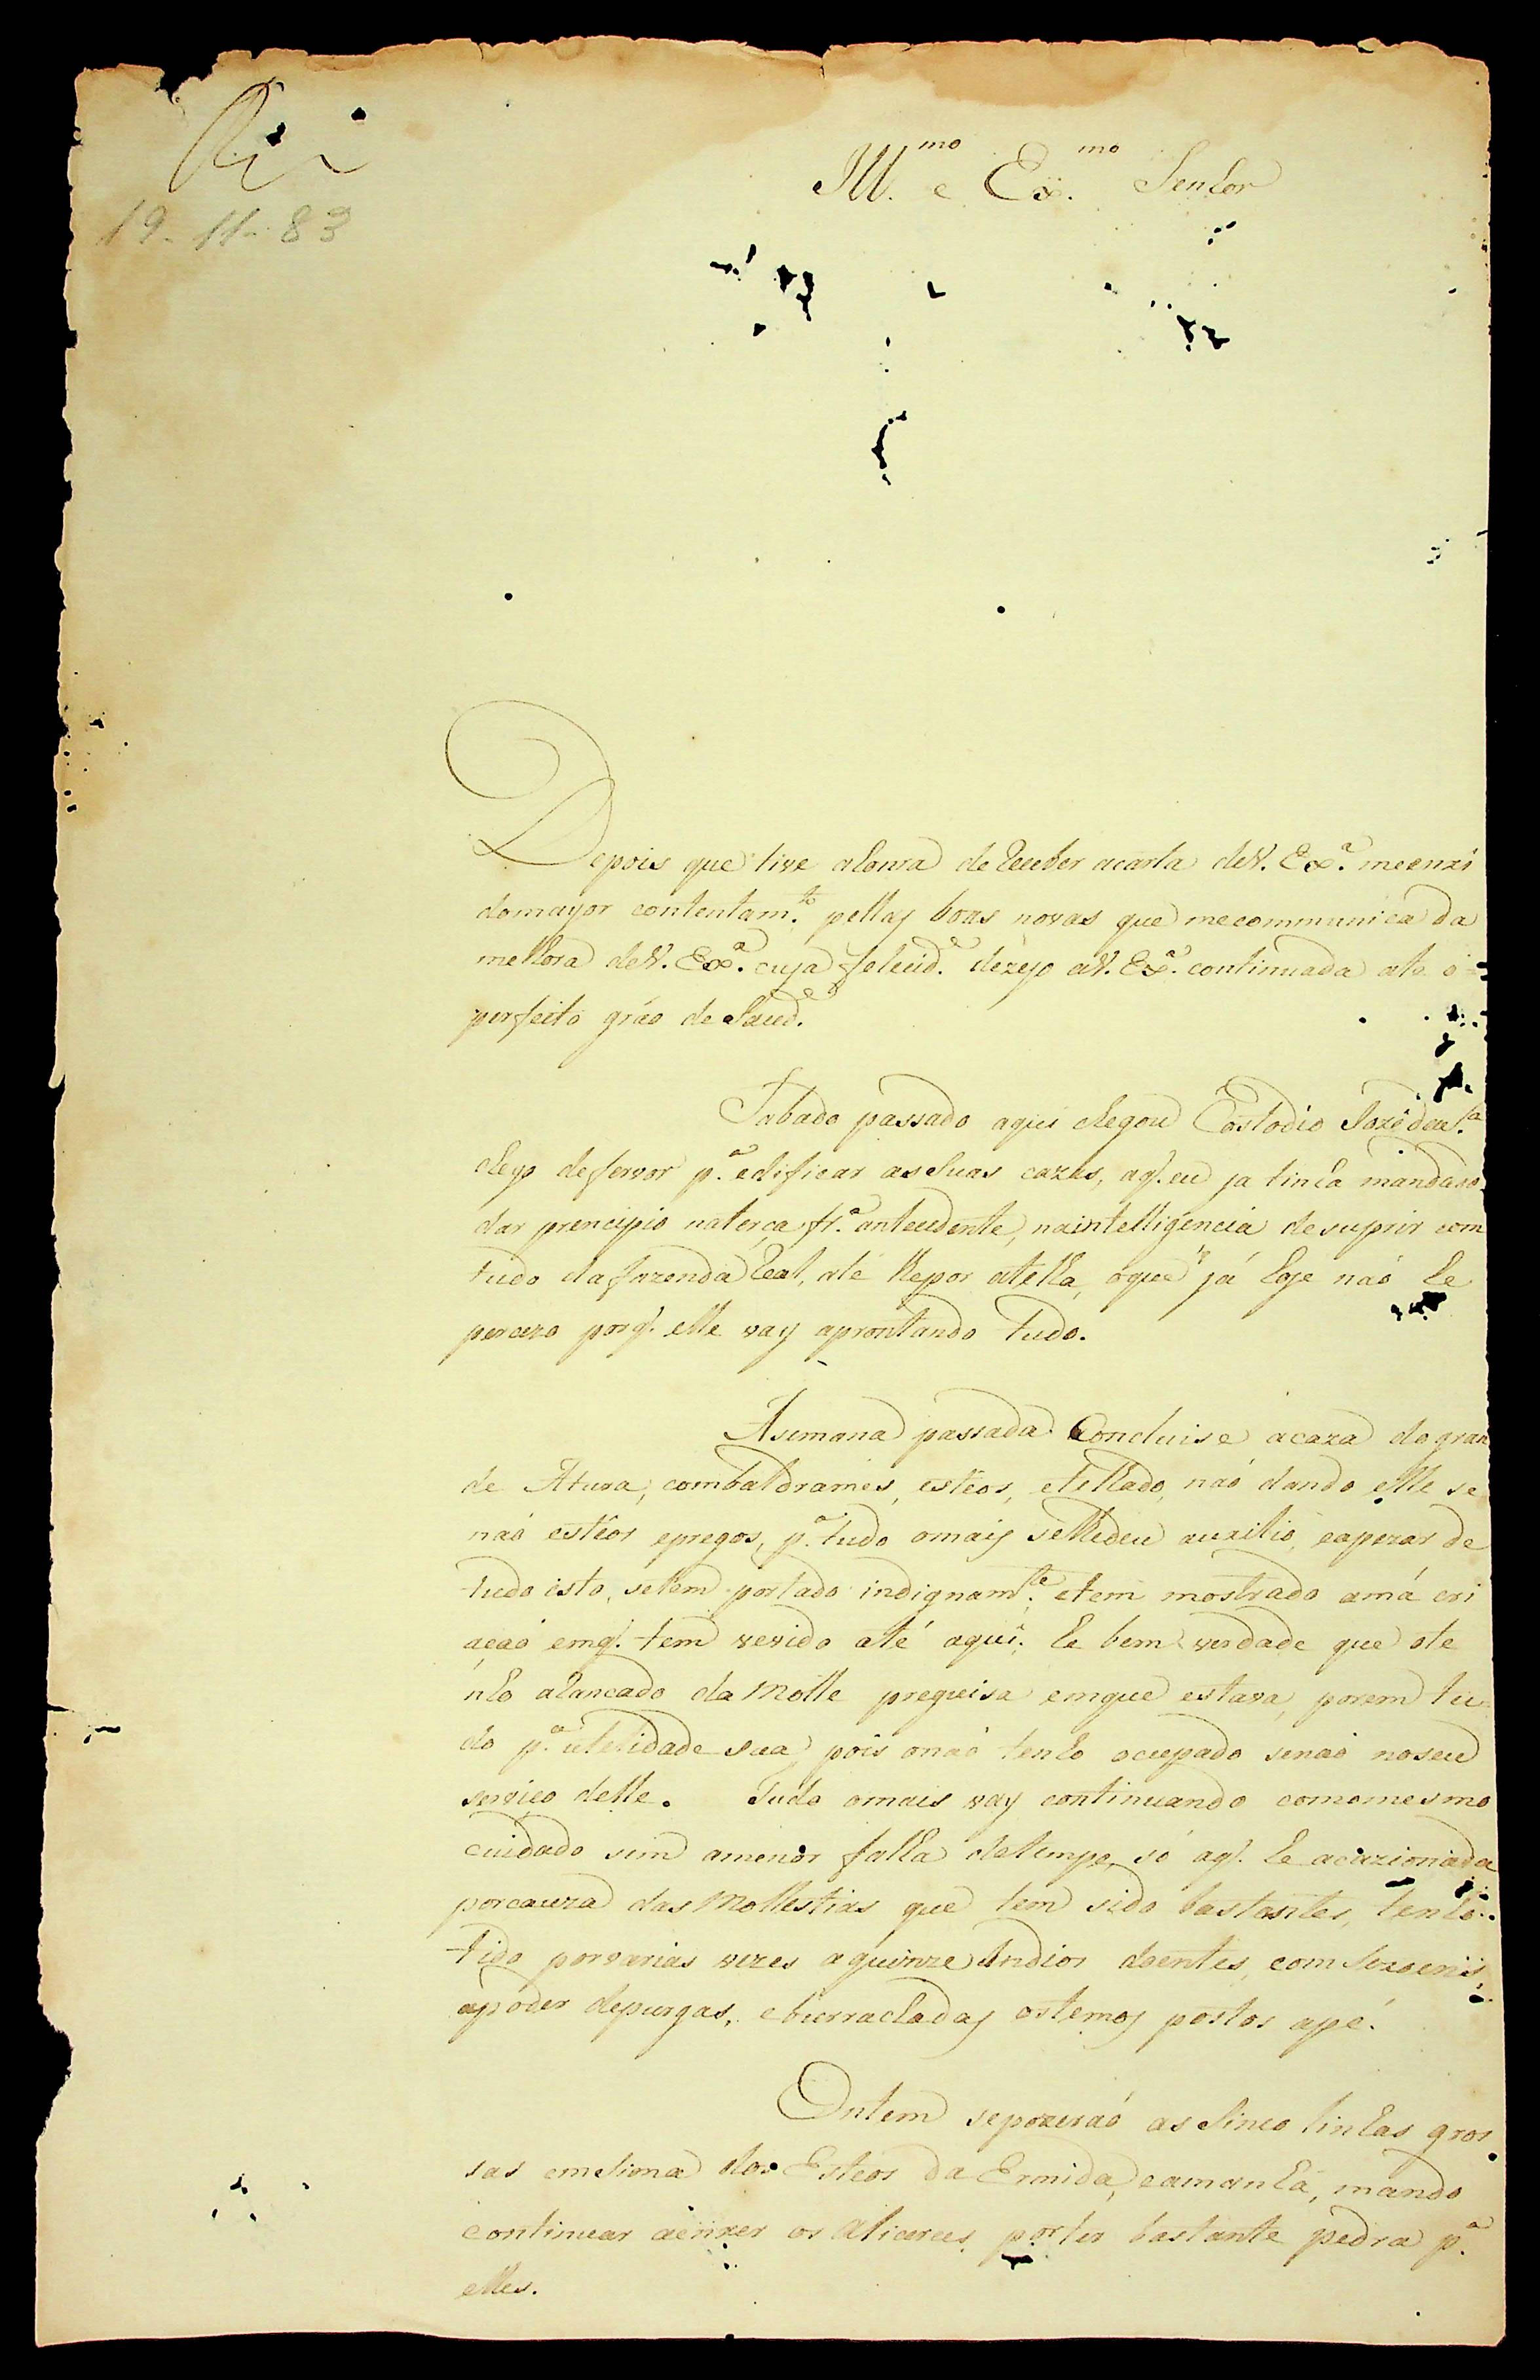 19-11-83
Ill.mo e Ex.mo Senhor
Depois que tive ahonra de receber acarta deV. Ex.a meenxi
domayor contentam.to pellas boas novas que mecommunica da
melhora deV. Ex.a cuja felecid.e dezejo aV. Ex.a continuada ate o
perfeito gráo de Saud.e
Sabado passado aqui chegou Costodio Jozê
cheyo defervor p.a edificar assuas cazas, aq. eu ja tinha mandado
dar principio naterça fr.a antecedente, naintelligencia desuprir com
tudo dafazenda Real, ate lhepor atelha, oque já hoje naó he
percizo porq. elle vay aprontando tudo.
Asemana passada Concluise acaza do gran
de Atura, combaldrames, esteos, etelhado, naó dando elle se
naó estêos epregos, p.a tudo omais selhedeu auxilio, eapezar de
tudo isto, setem portado indignam.te etem mostrado amá cri
açaó emq. tem vevido até aqui; he bem verdade que ote
nho alancado da Molle preguisa emque estava, porem tu
do p.a utelidade sua, pois onaó tenho ocupado senaó noseu
serviço delle. Tudo omais vay continuando comomesmo
cuidado sem amenor falta detempo, só aq. he acazionada
porcauza das Mollestias que tem sido bastantes, tenho
tido porvarias vezes aquinze Indios doentes, com Sezoens,
apoder depurgas, eburrachadas ostemos postos apé.
Ontem sepozeraó as Sinco linhas gros
sas emSima dos Esteos da Ermida, eamanhá, mando
continuar os Alicerces porter bastante pedra p.a
elles.